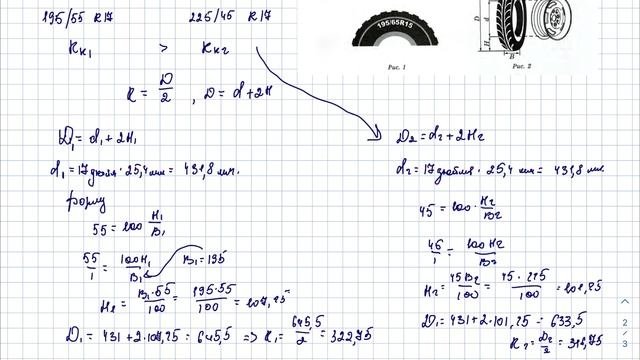 195/55 R17
225/45 R17
Rк1 > Rк2
R = D/2 , D = d+2H
195/65R15
Рис. 1
D
d
H
B
Рис. 2
D1 = d1 + 2H1
d1 = 17 дюйма · 25,4 мм = 431,8 мм.
55 = 100 H1/B1
55/1 = 100H1/B1
B1 = 195
H1 = B1·55/100 = 195·55/100 = 107,25
D1 = 431 + 2·107,25 = 645,5 => R1 = 645,5/2 = 322,75
D2 = d2 + 2H2
d2 = 17 дюйма · 25,4 мм = 431,8 мм.
45 = 100 · H2/B2
45/1 = 100H2/B2
H2 = 45B2/100 = 45·225/100 = 101,25
D1 = 431 + 2·101,25 = 633,5
R2 = D2/2 = 316,75
2
3